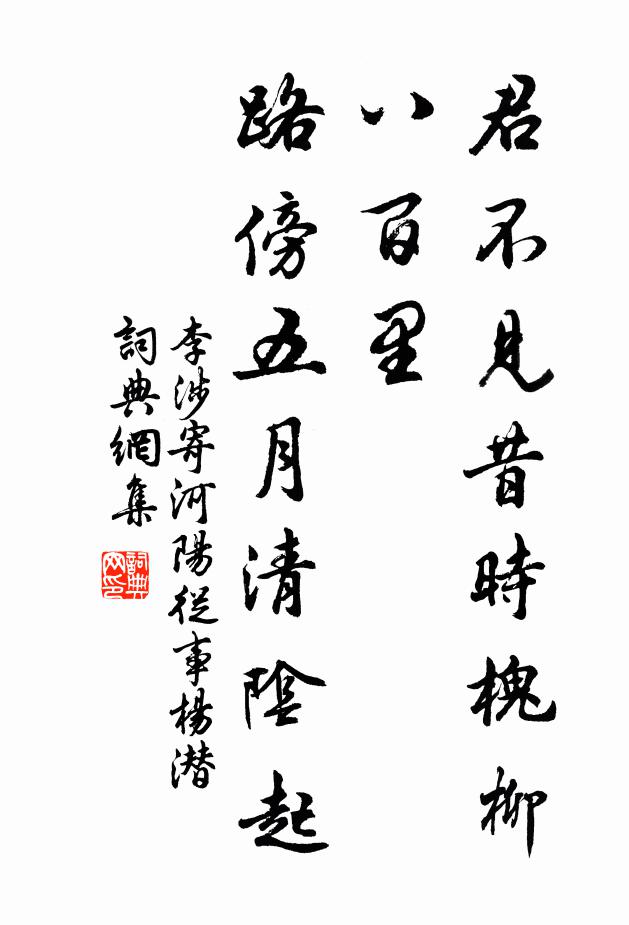 君不見昔時槐柳
八百里
路傍五月清陰起
李涉寄河陽從事楊潛
詞典網集
詞典
网印